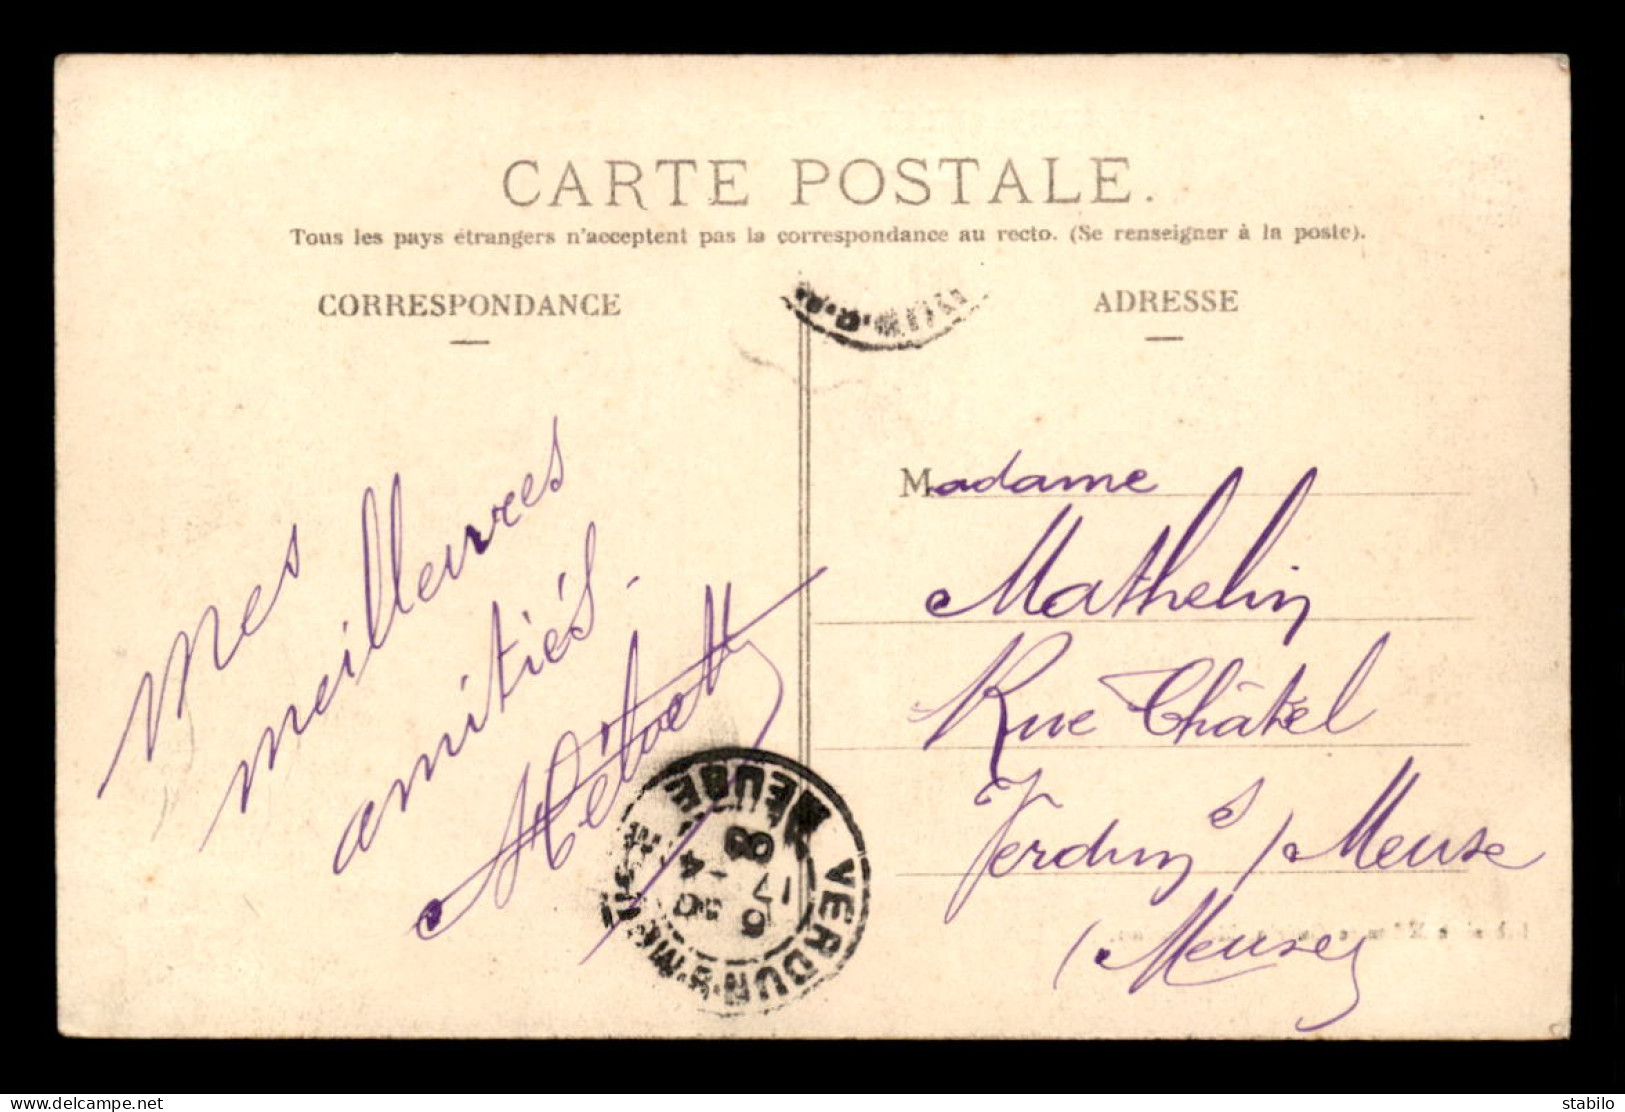 CARTE POSTALE.
Tous les pays étrangers n'acceptent pas la correspondance au recto. (Se renseigner à la poste).
CORRESPONDANCE
ADRESSE
Mes
meilleures
amitiés.
Madame
Mathelin
Rue Châtel
Verdun s/ Meuse
(Meuse)
VERDUN-S-MEUSE
MEUSE
delcampe.net
stabilo